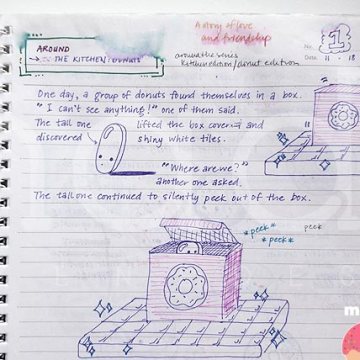 A story of love
and friendship
No. 1
Date. 11 · 18
AROUND
THE KITCHEN: DONUTS
around the series
kitchen edition / donut edition
One day, a group of donuts found themselves in a box.
"I can't see anything!" one of them said.
The tall one lifted the box cover and
discovered shiny white tiles.
"Where are we?"
another one asked.
The tall one continued to silently peek out of the box.
*peek*
*peek*
peek
m